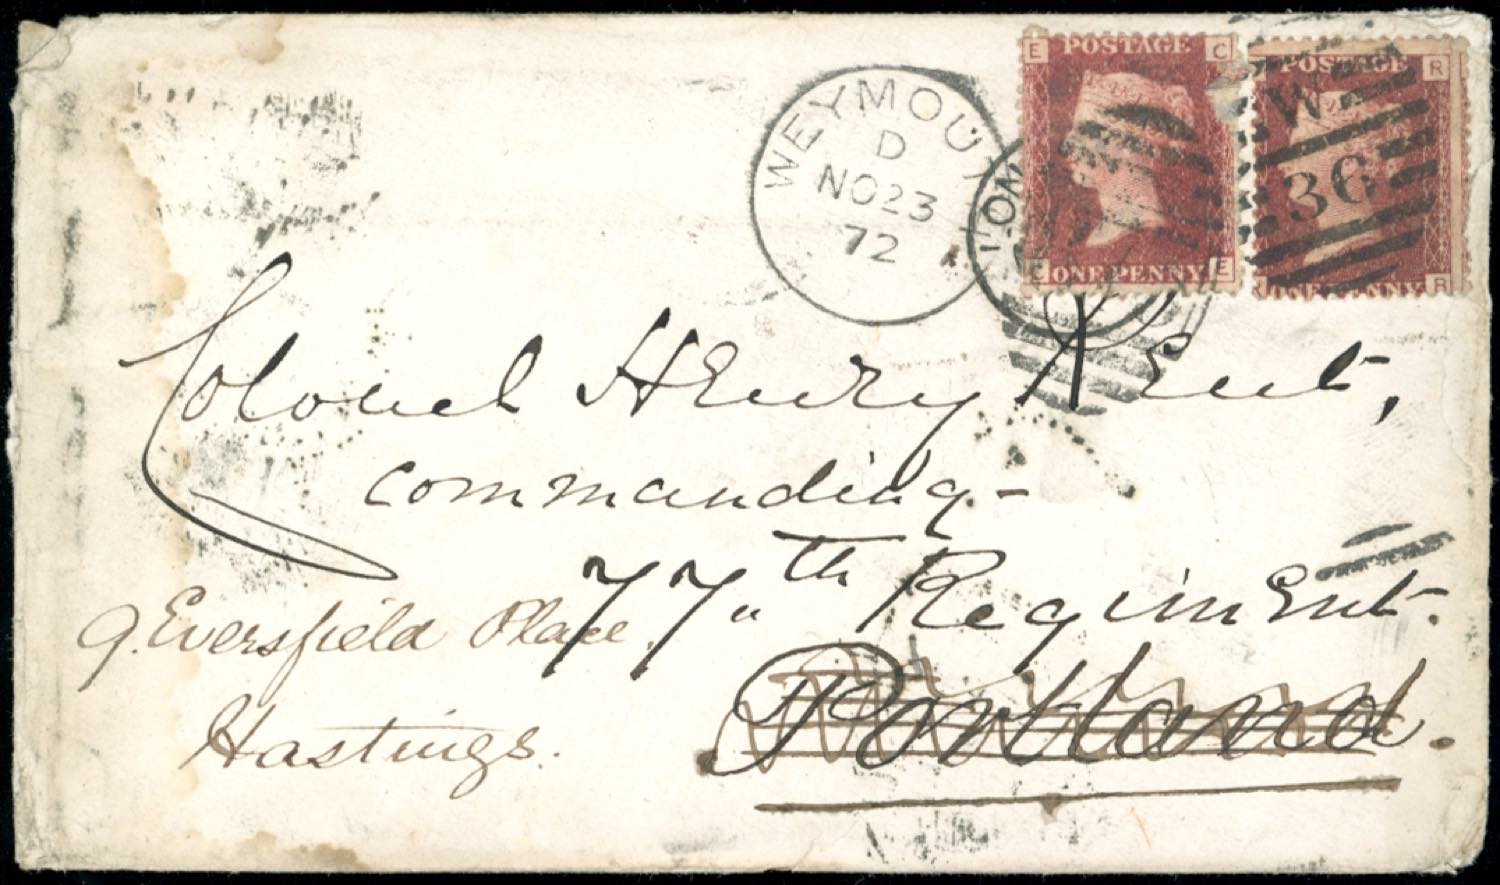 E POSTAGE C
E ONE PENNY E
POSTAGE R
ONE PENNY R
W
36
WEYMOUTH
D
NO 23
72
LON
Colonel Henry Kent,
commanding-
77th Regiment.
Portland.
9. Eversfield Place.
Hastings.